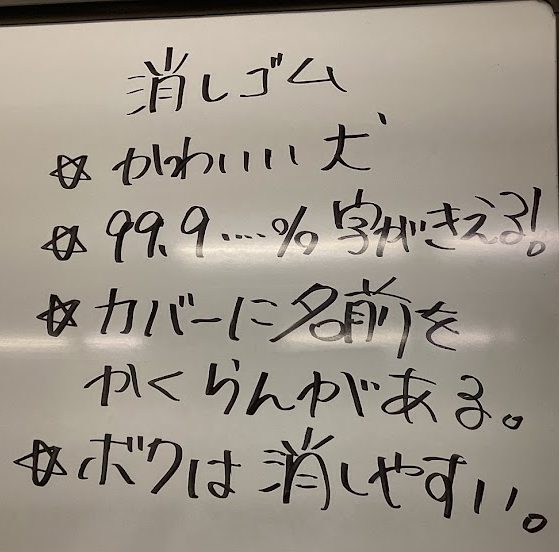 消しゴム
☆かわいい犬
☆99.9....% 字がきえる!。
☆カバーに名前を
かくらんがある。
☆ボクは消しやすい。